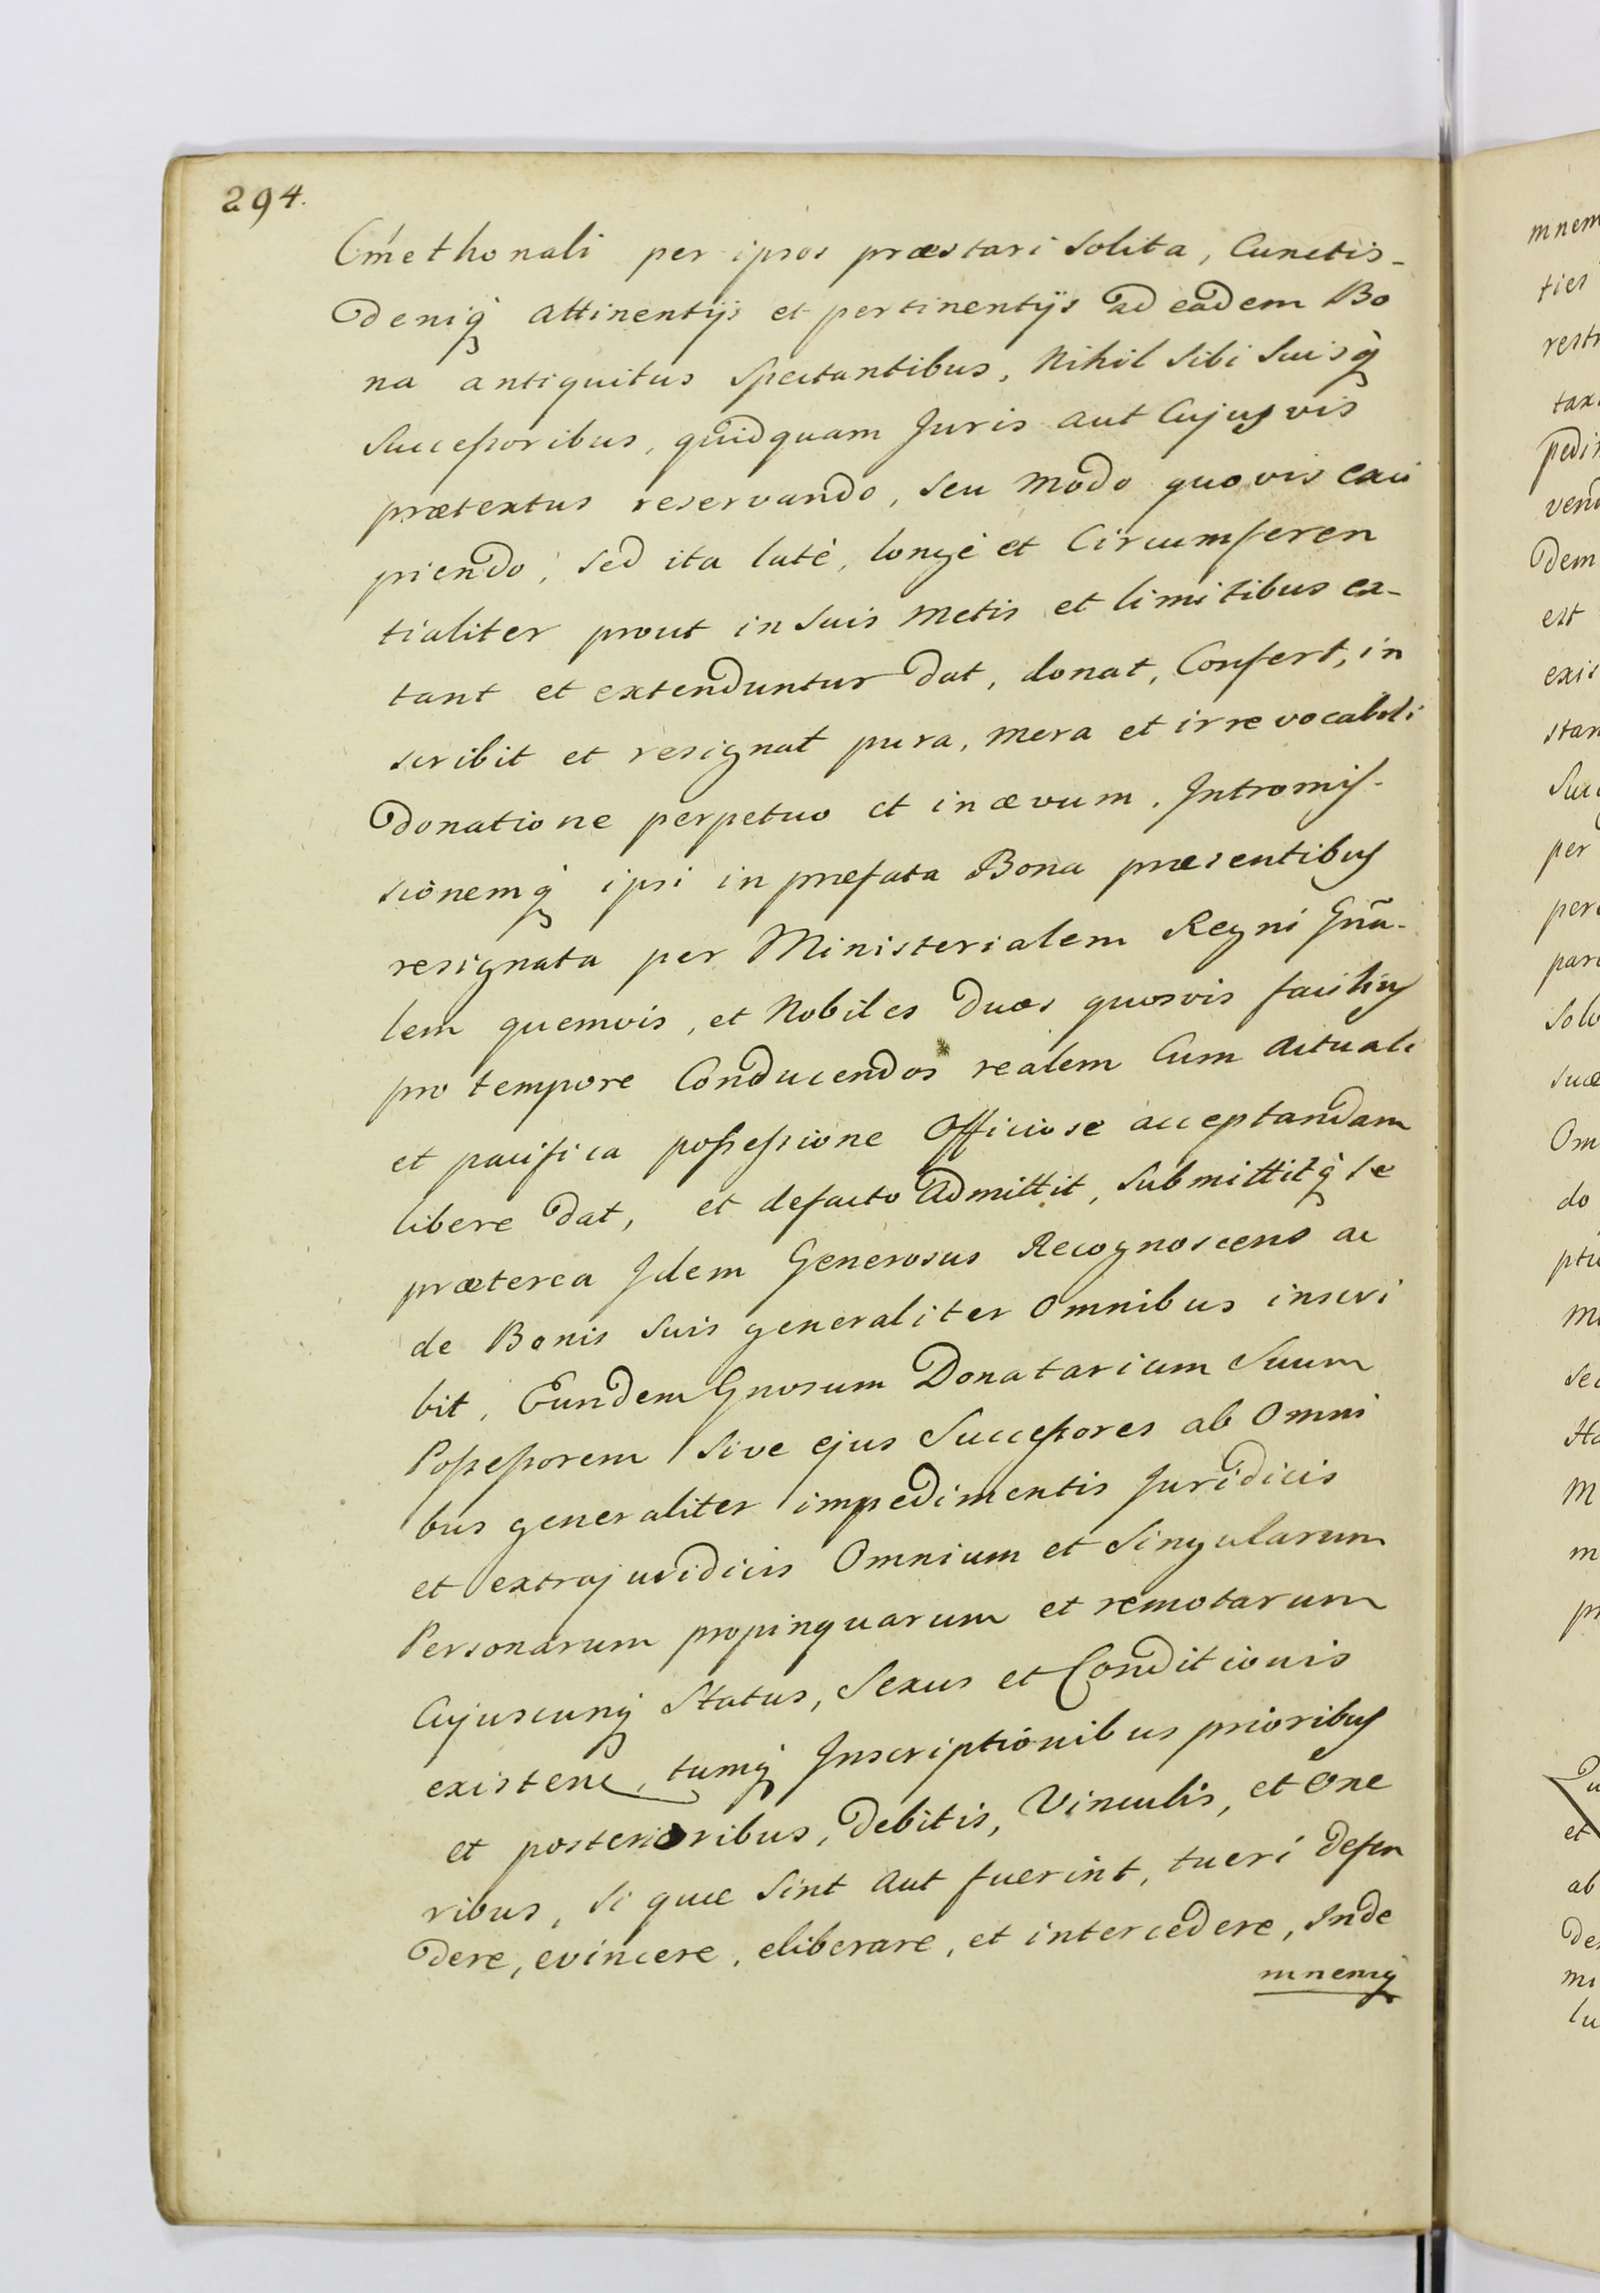 294.
Cmethonali per ipsos præstari solita, Cunctis-
deniq̃ attinentijs et pertinentijs ad eadem Bo
na antiquitus spectantibus, Nihil sibi suisq̃
successoribus, quidquam Juris aut Cujusvis
prætextus reservando, seu modo quovis exci
piendo, sed ita latè, longè et Circumferen
tialiter prout in suis metis et limitibus ex-
tant et extenduntur dat, donat, Confert, in
scribit et resignat pura, mera et irrevocabili
donatione perpetuo et in ævum. Intromis-
sionemq̃ ipsi in præfata Bona præsentibus
resignata per Ministerialem Regni Gñà-
lem quemvis, et Nobiles duos quosvis facilius
pro tempore Conducendos realem Cum actuali
et pacifica possessione Officiose acceptandam
libere dat, et defacto admittit, submittitq̃ se
præterea Idem Generosus Recognoscens ac
de Bonis suis generaliter omnibus inscri
bit, Eundem Gnosum Donatarium Suum
Possessorem sive ejus Successores ab Omni
bus generaliter impedimentis Juridicis
et extrajuridicis Omnium et singularum
Personarum propinquarum et remotarum
Cujuscunq̃ status, sexus et Conditionis
existen, tumq̃ Inscriptionibus prioribus
et posterioribus, debitis, Vinculis, et One
ribus, si quæ sint aut fuerint, tueri defen
dere, evincere, eliberare, et intercedere, Inde
mnemq̃
mnem
ties
restr
tax
pedi
vend
dem
est
exis
stan
Suc
per
per
par
Solv
suæ
Om
do
ptio
M
sec
Ha
M
m
pr
et
ab
de
mi
lu